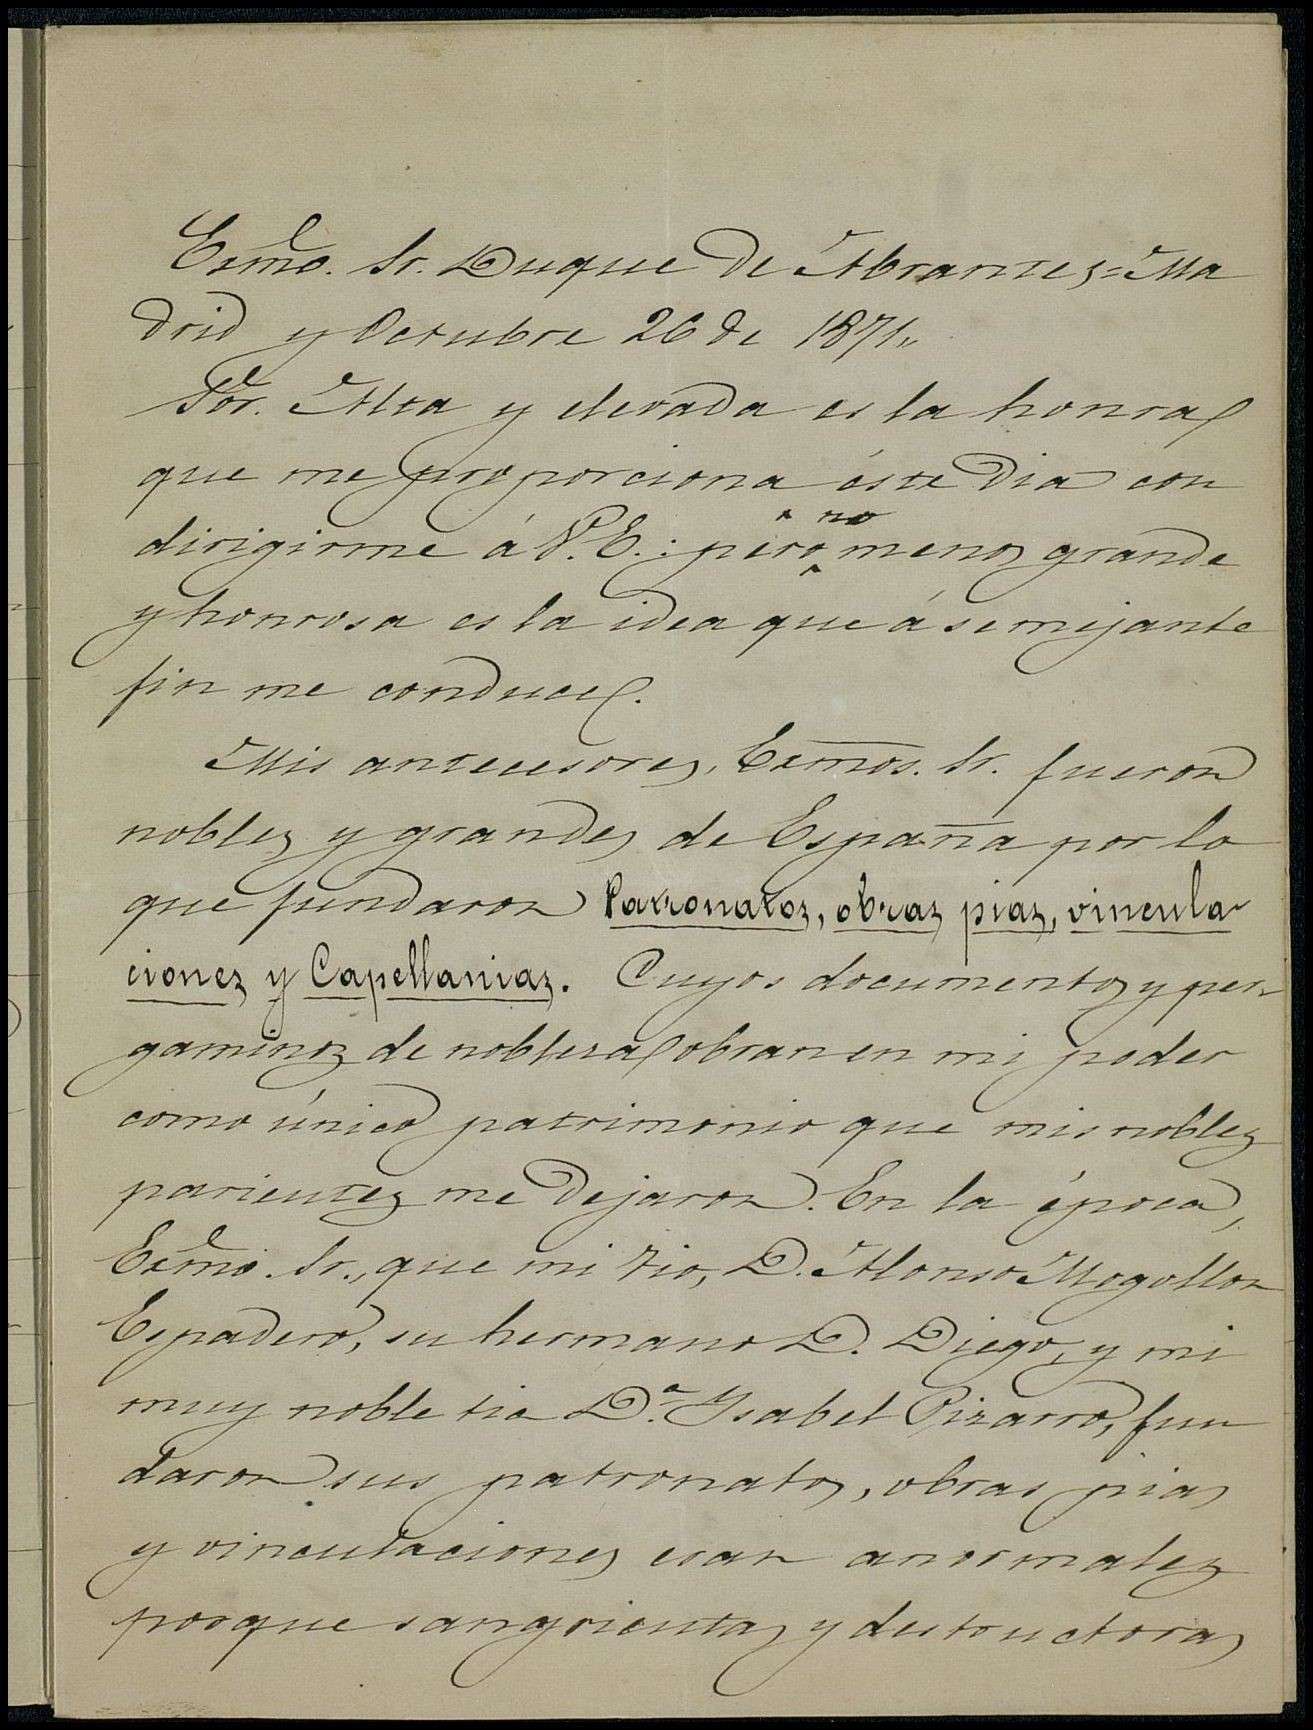 Exmo. Sr. Duque de Abrantes = Ma
drid y Octubre 26 de 1871,,
Sor. Alta y elevada es la honra
que me proporciona éste dia con
dirigirme á V.E.: pero no menos grande
y honrosa es la idea que á semejante
fin me conduce.
Mis antecesores, Exmos. Sr. fueron
nobles y grandes de España por lo
que fundaron Patronatos, obras pias, vincula
ciones y Capellanias. Cuyos documentos y per
gaminos de nobleza obran en mi poder
como único patrimonio que mis nobles
parientes me dejaron. En la época,
Exmo. Sr., que mi tio, D. Alonso Mogollon
Espadero, su hermano D. Diego, y mi
muy noble tia D.ª Ysabel Pizarro, fun
daron sus patronatos, obras pias
y vinculaciones eran anormales
porque sangrientas y destructoras